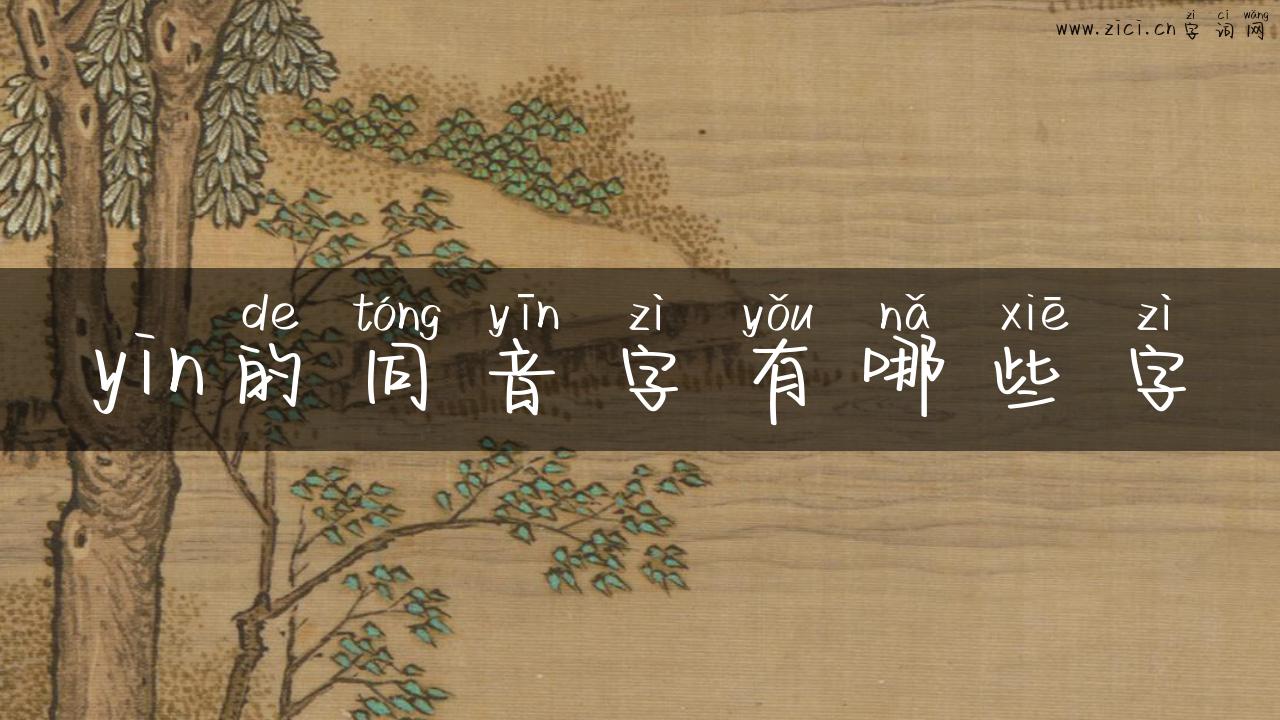 zì cí wǎng
www.zici.cn 字词网
de tóng yīn zì yǒu nǎ xiē zì
yīn的同音字有哪些字